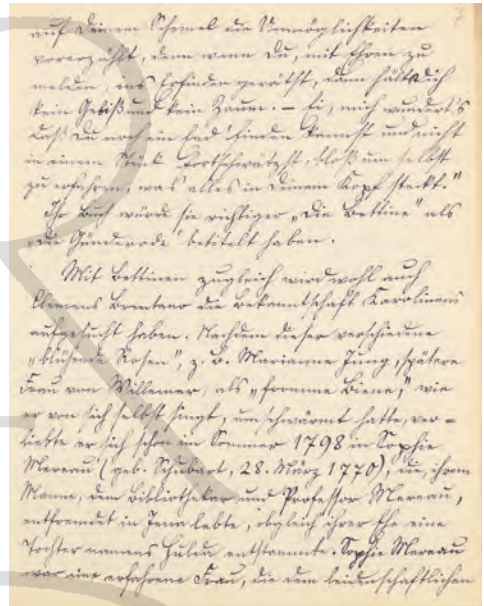 7
auf Deinem Schemel die Unmöglichkeiten
vorerzählt, denn wenn Du, mit Ehren zu
melden, ins Erfinden gerätst, dann hält Dich
kein Gebiß und kein Zaum. – Ei, mich wundert's
daß Du noch ein End' finden kannst und nicht
in einem Stück fortschwätzst, bloß um selbst
zu erfahren, was alles in Deinem Kopf steckt."
Ihr Buch würde sie richtiger „Die Bettine" als
„Die Günderode" betitelt haben.
Mit Bettinen zugleich wird wohl auch
Clemens Brentano die Bekanntschaft Karolinens
aufgesucht haben. Nachdem dieser verschiedene
„blühende Rosen", z. B. Marianne Jung, spätere
Frau von Willemer, als „fromme Biene", wie
er von sich selbst singt, umschwärmt hatte, ver-
liebte er sich schon im Sommer 1798 in Sophie
Mereau (geb. Schubart, 28. März 1770), die, ihrem
Manne, dem Bibliothekar und Professor Mereau,
entfremdet in Jena lebte, obgleich ihrer Ehe eine
Tochter namens Hulda entstammte. Sophie Mereau
war eine erfahrene Frau, die dem leidenschaftlichen